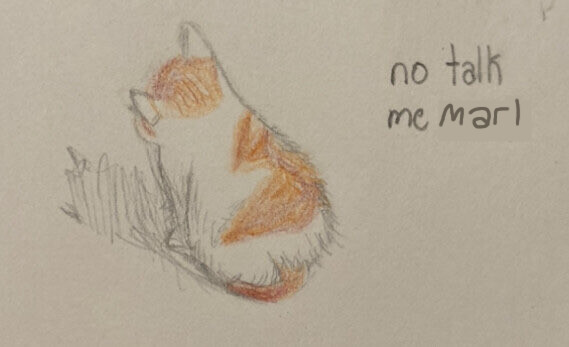 no talk
me Marl